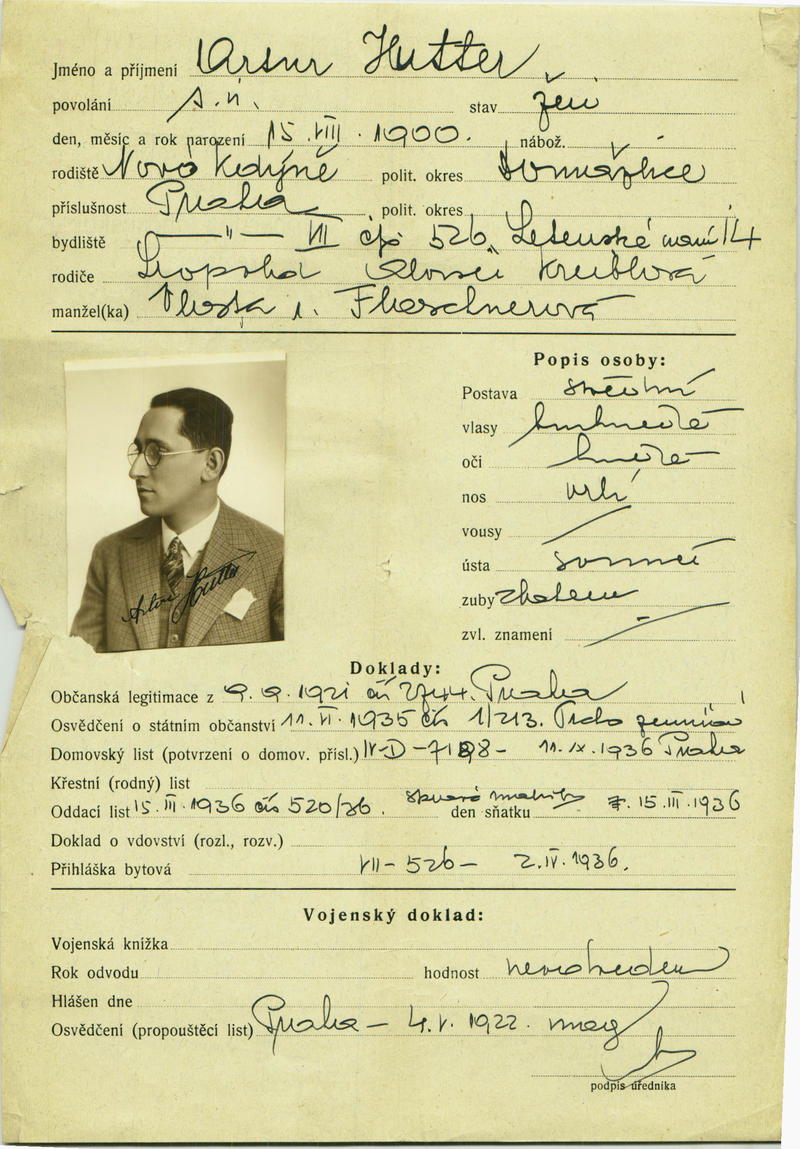 Jméno a příjmení Artur Hutter
povolání s. ú. stav žen
den, měsíc a rok narození 15. VIII. 1900. nábož.
rodiště Nová Kdyně polit. okres Domažlice
příslušnost Praha polit. okres
bydliště — " — VII čp 526, Letenské nám 14
rodiče Leopold Kreiblová
manžel(ka) Vlasta r. Fleschnerová
Popis osoby:
Postava střední
vlasy tmhnědé
oči hnědé
nos
vousy
ústa souměr
zuby
zvl. znamení
Doklady:
Občanská legitimace z 9. 9. 1921 čís Praha
Osvědčení o státním občanství 11. VI. 1935 čís 1/213.
Domovský list (potvrzení o domov. přísl.) IV-D-7198- 11. IX. 1936 Praha
Křestní (rodný) list
Oddací list 15. III. 1936 čís 520/36. den sňatku 15. III. 1936
Doklad o vdovství (rozl., rozv.)
Přihláška bytová VII - 526 - 2. IV. 1936.
Vojenský doklad:
Vojenská knížka
Rok odvodu hodnost neodveden
Hlášen dne
Osvědčení (propouštěcí list) Praha - 4. V. 1922. mag
podpis úředníka
Artur Hutter